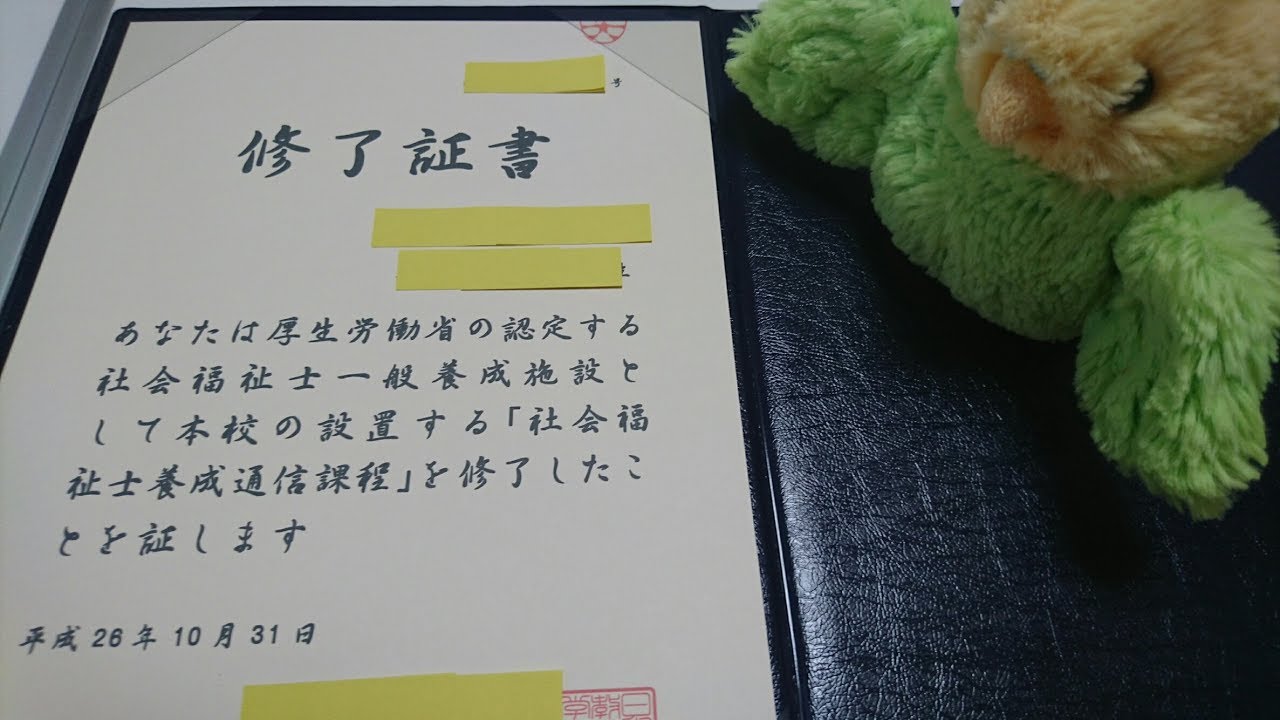 号
修了証書
あなたは厚生労働省の認定する
社会福祉士一般養成施設と
して本校の設置する「社会福
祉士養成通信課程」を修了したこ
とを証します
平成26年10月31日